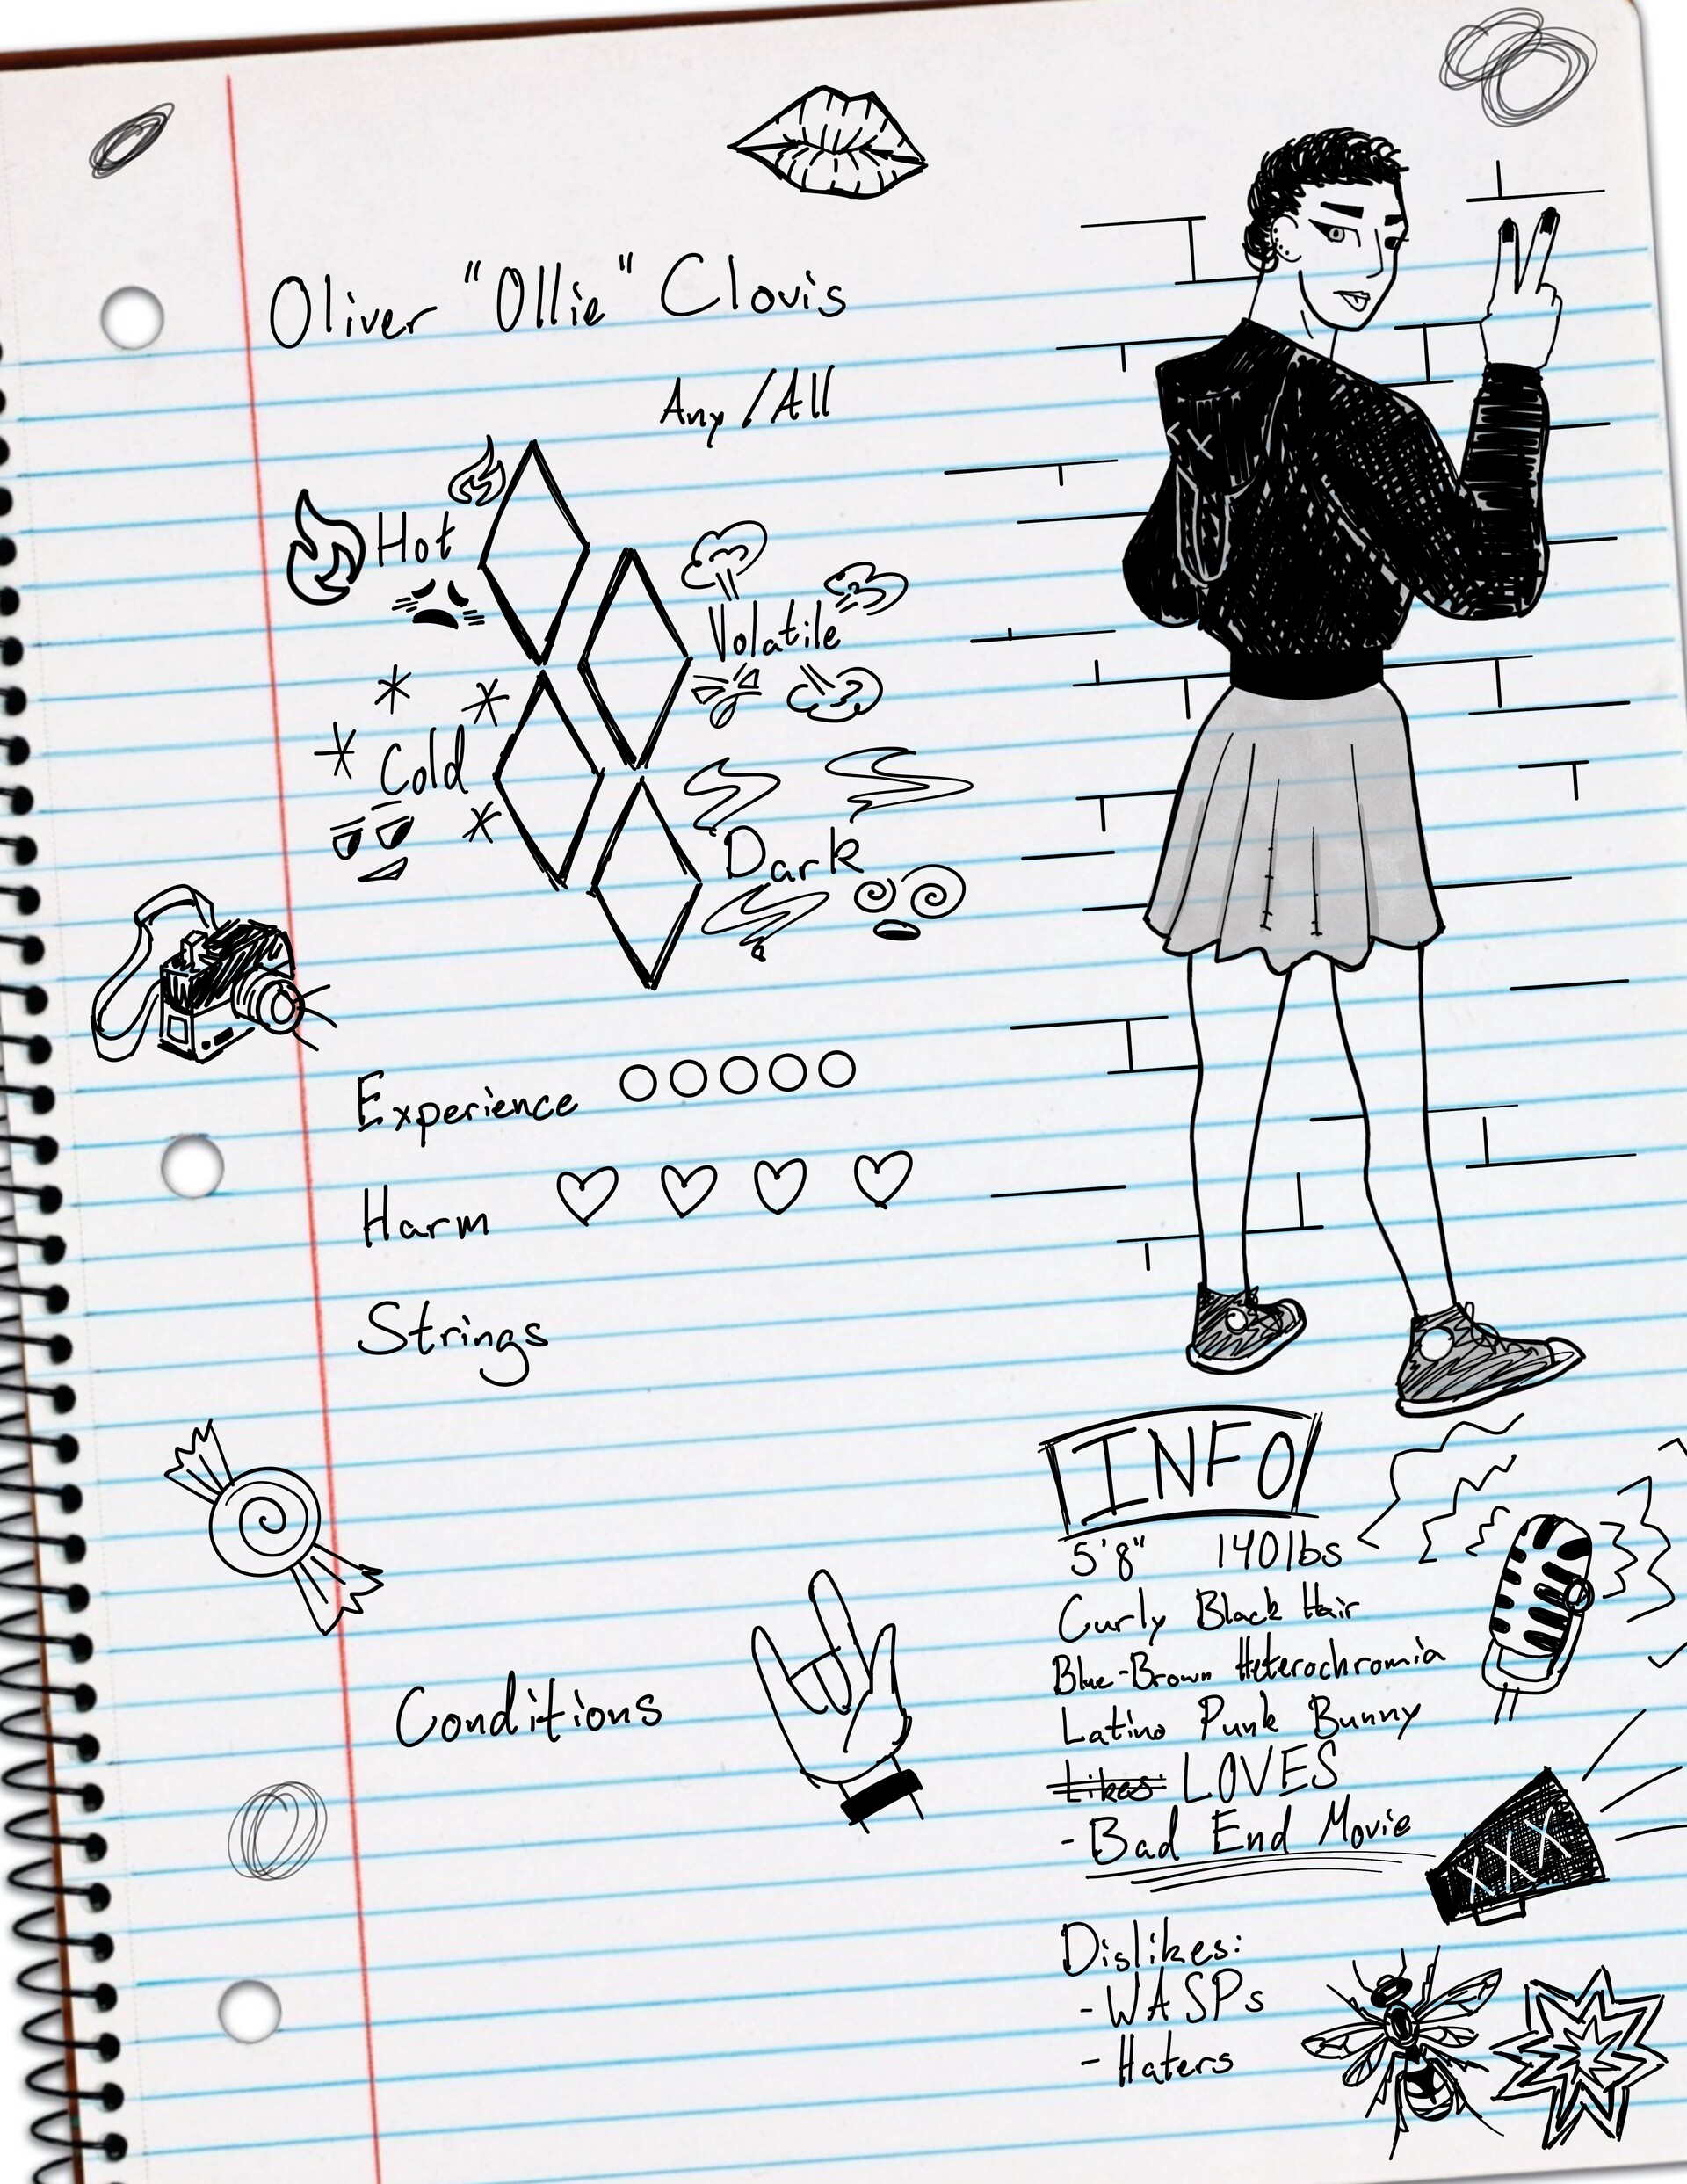 Oliver "Ollie" Clovis
Any/All
Hot
Volatile
Cold
Dark
Experience
Harm
Strings
Conditions
INFO
5'8" 140lbs
Curly Black Hair
Blue-Brown Heterochromia
Latino Punk Bunny
Likes: LOVES
- Bad End Movie
XXX
Dislikes:
- WASPs
- Haters